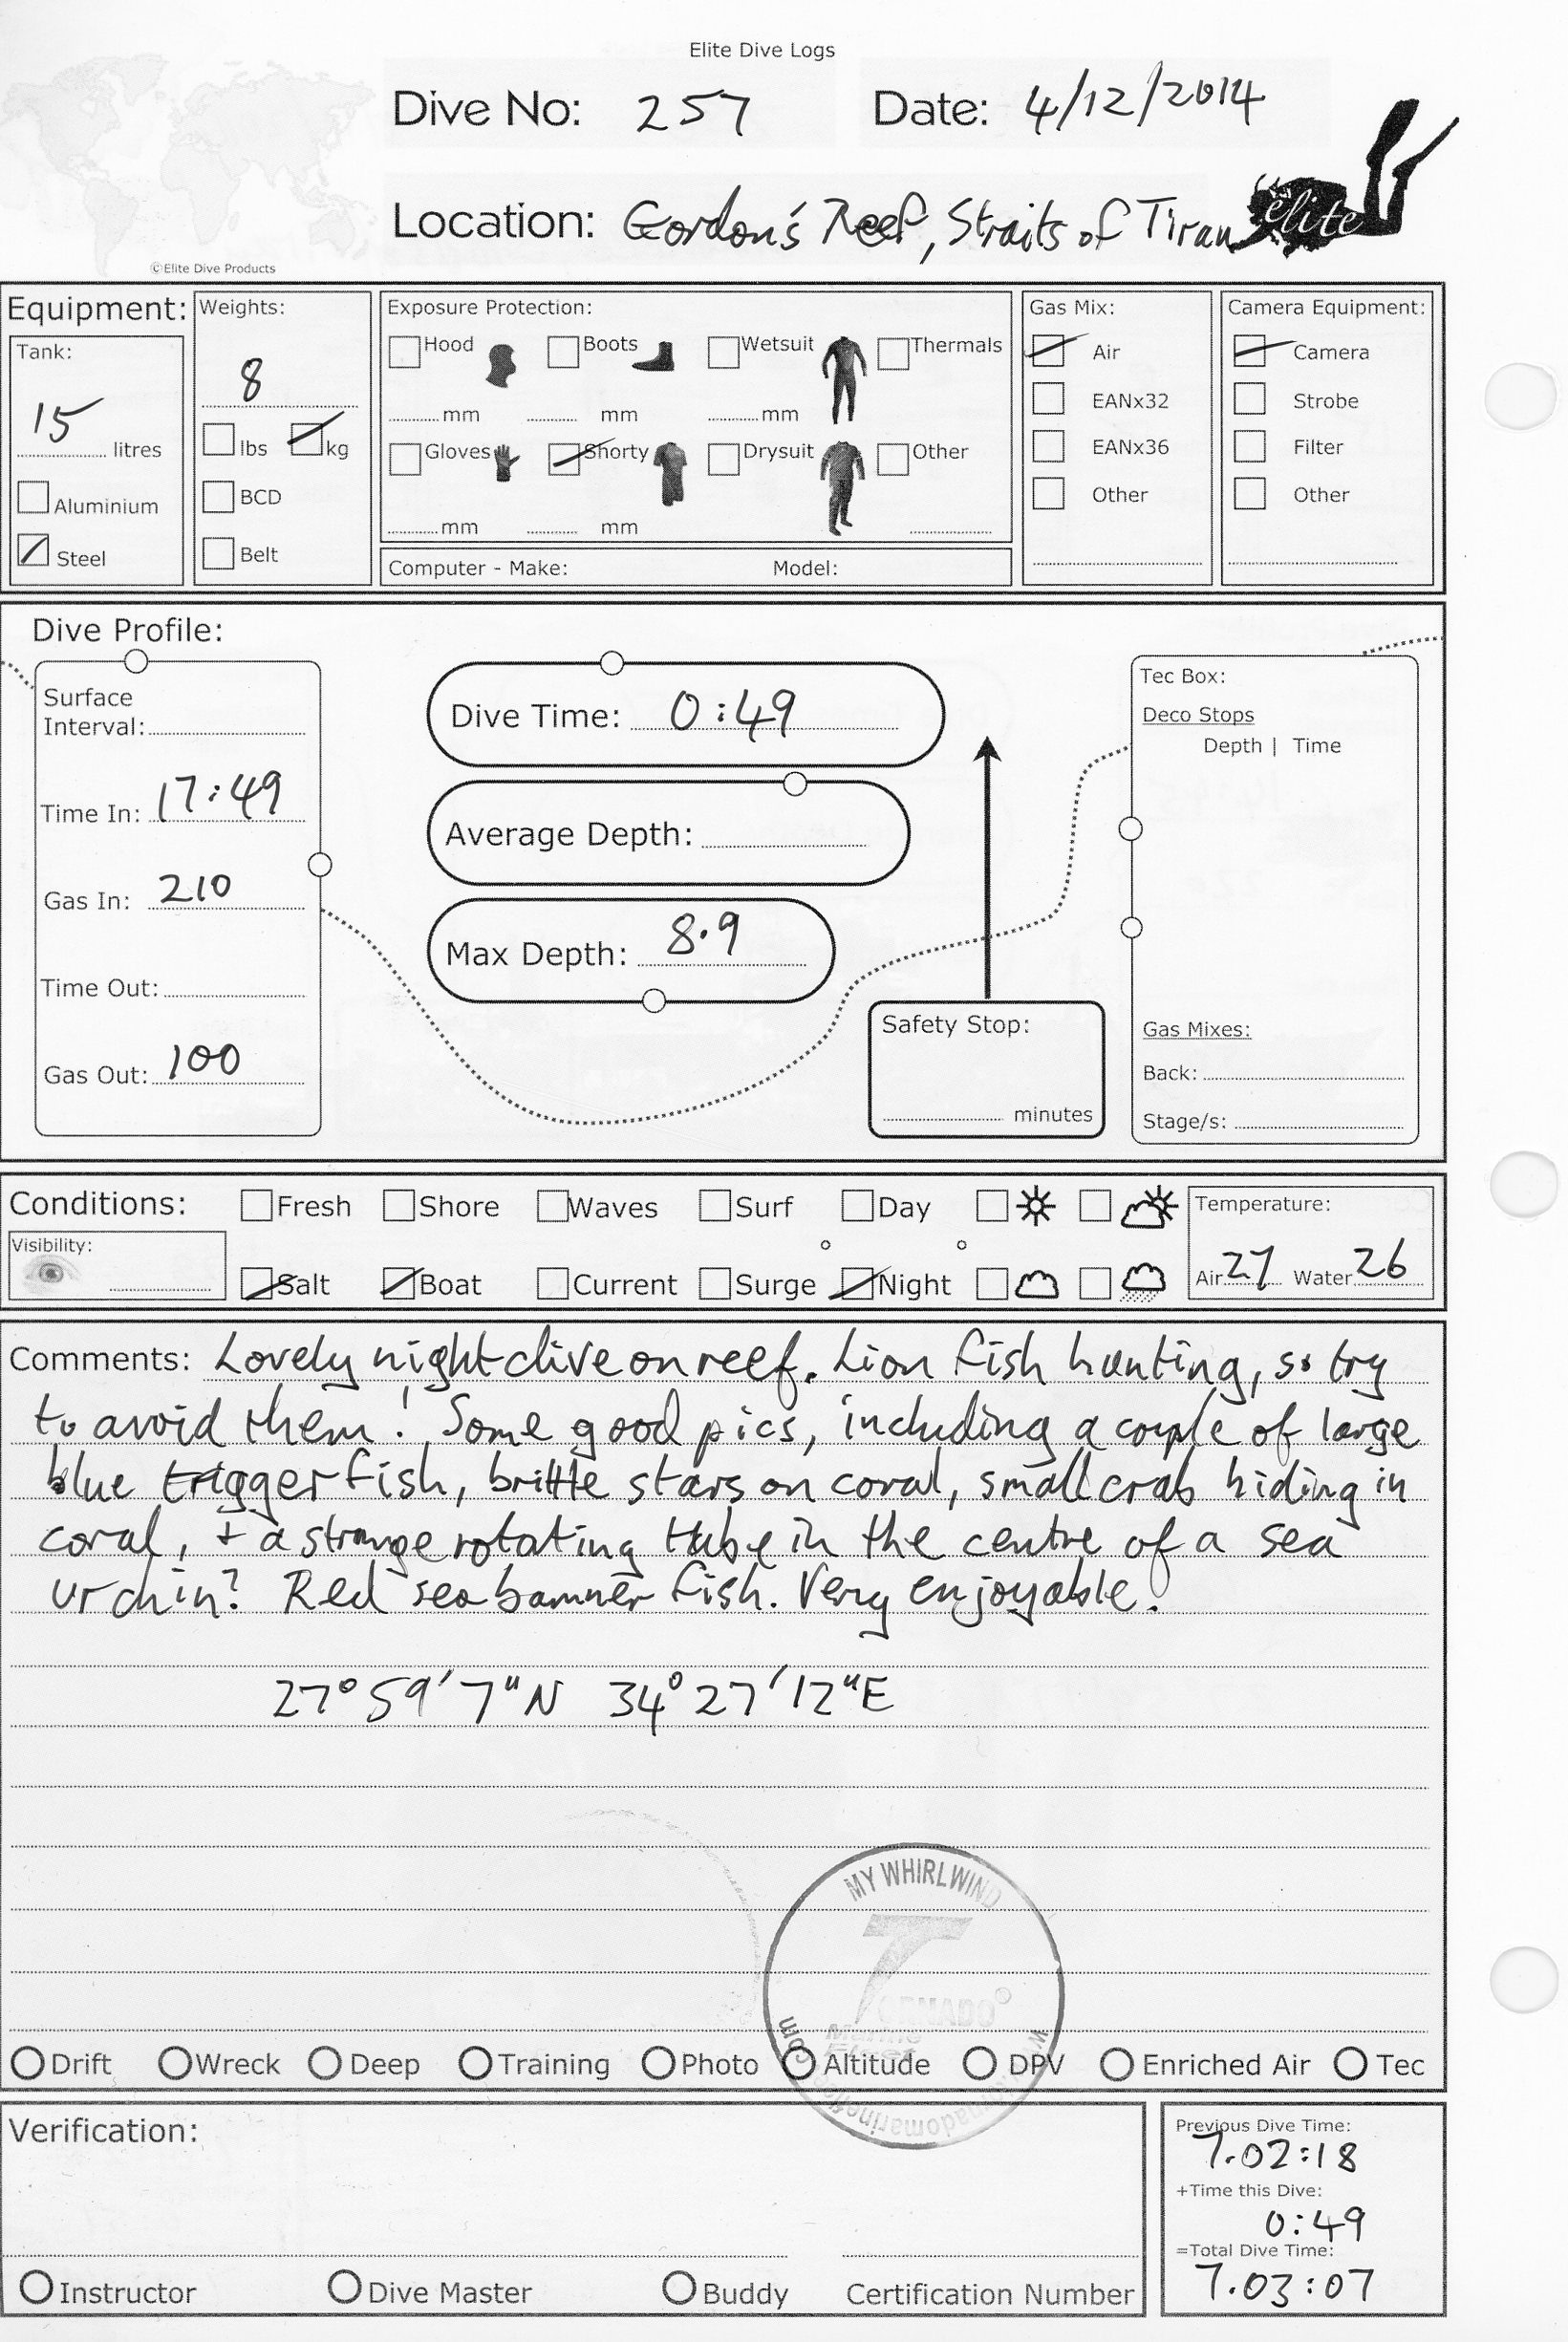 Elite Dive Logs
Dive No: 257 Date: 4/12/2014
Location: Gordon's Reef, Straits of Tiran
elite
©Elite Dive Products
Equipment:
Tank:
15 litres
Aluminium
Steel
Weights:
8
lbs kg
BCD
Belt
Exposure Protection:
Hood Boots Wetsuit Thermals
mm mm mm
Gloves Shorty Drysuit Other
mm mm
Computer - Make: Model:
Gas Mix:
Air
EANx32
EANx36
Other
Camera Equipment:
Camera
Strobe
Filter
Other
Dive Profile:
Surface
Interval:
Time In: 17:49
Gas In: 210
Time Out:
Gas Out: 100
Dive Time: 0:49
Average Depth:
Max Depth: 8.9
Safety Stop:
minutes
Tec Box:
Deco Stops
Depth | Time
Gas Mixes:
Back:
Stage/s:
Conditions: Fresh Shore Waves Surf Day
Visibility:
Salt Boat Current Surge Night
Temperature:
Air 27 Water 26
Comments: Lovely night dive on reef. Lion fish hunting, so try
to avoid them! Some good pics, including a couple of large
blue trigger fish, brittle stars on coral, small crab hiding in
coral, + a strange rotating tube in the centre of a sea
urchin? Red sea banner fish. Very enjoyable.
27° 59' 7" N 34° 27' 12" E
MY WHIRLWIND
TORNADO
Marine
Fleet
Drift Wreck Deep Training Photo Altitude DPV Enriched Air Tec
Verification:
Instructor Dive Master Buddy Certification Number
Previous Dive Time:
7.02:18
+Time this Dive:
0:49
=Total Dive Time:
7.03:07